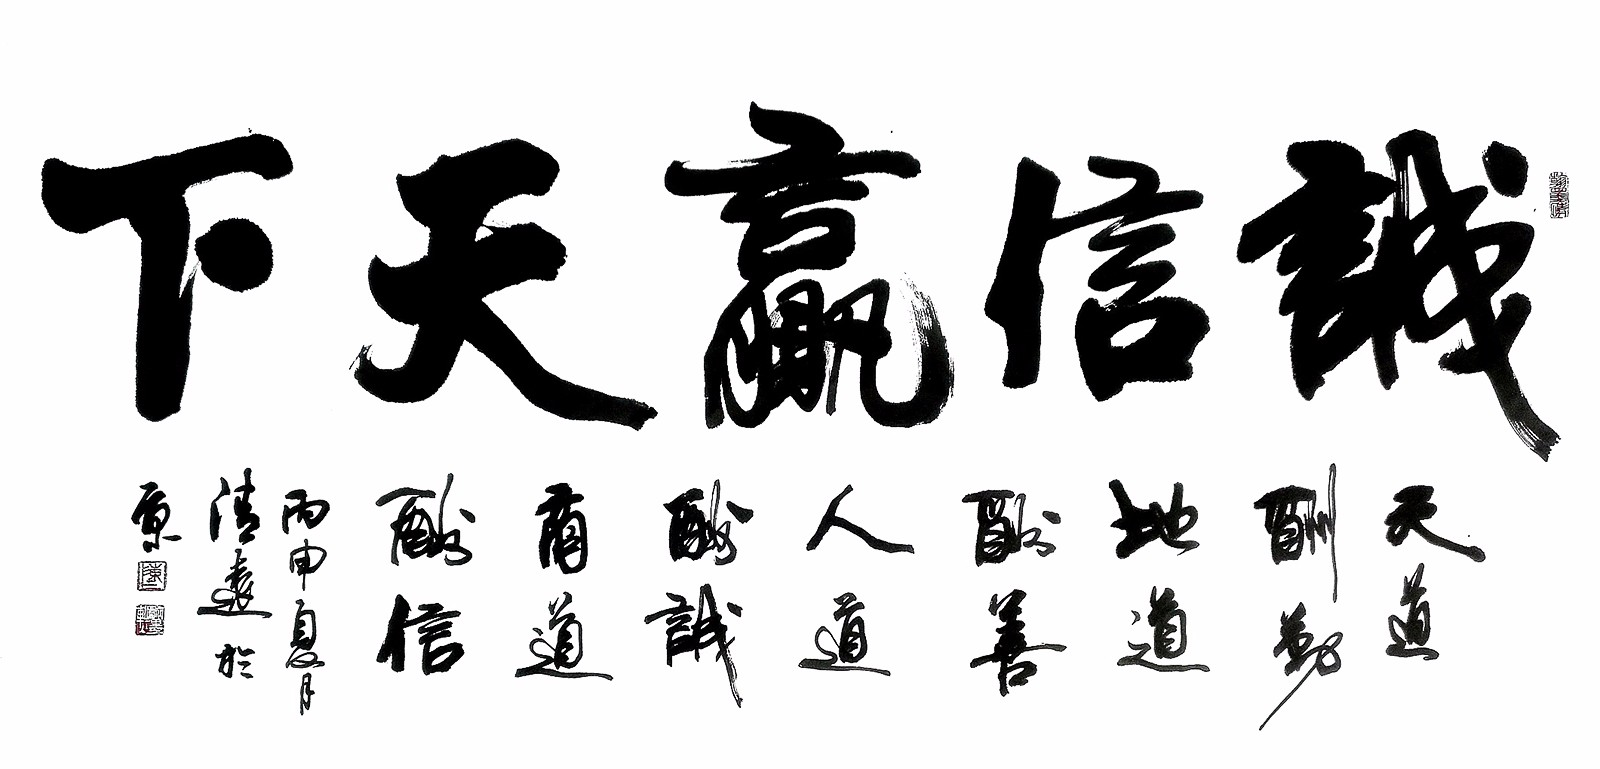 誠信贏天下
天道
酬勤
地道
酬善
人道
酬誠
商道
酬信
丙申夏月
清遠於
京